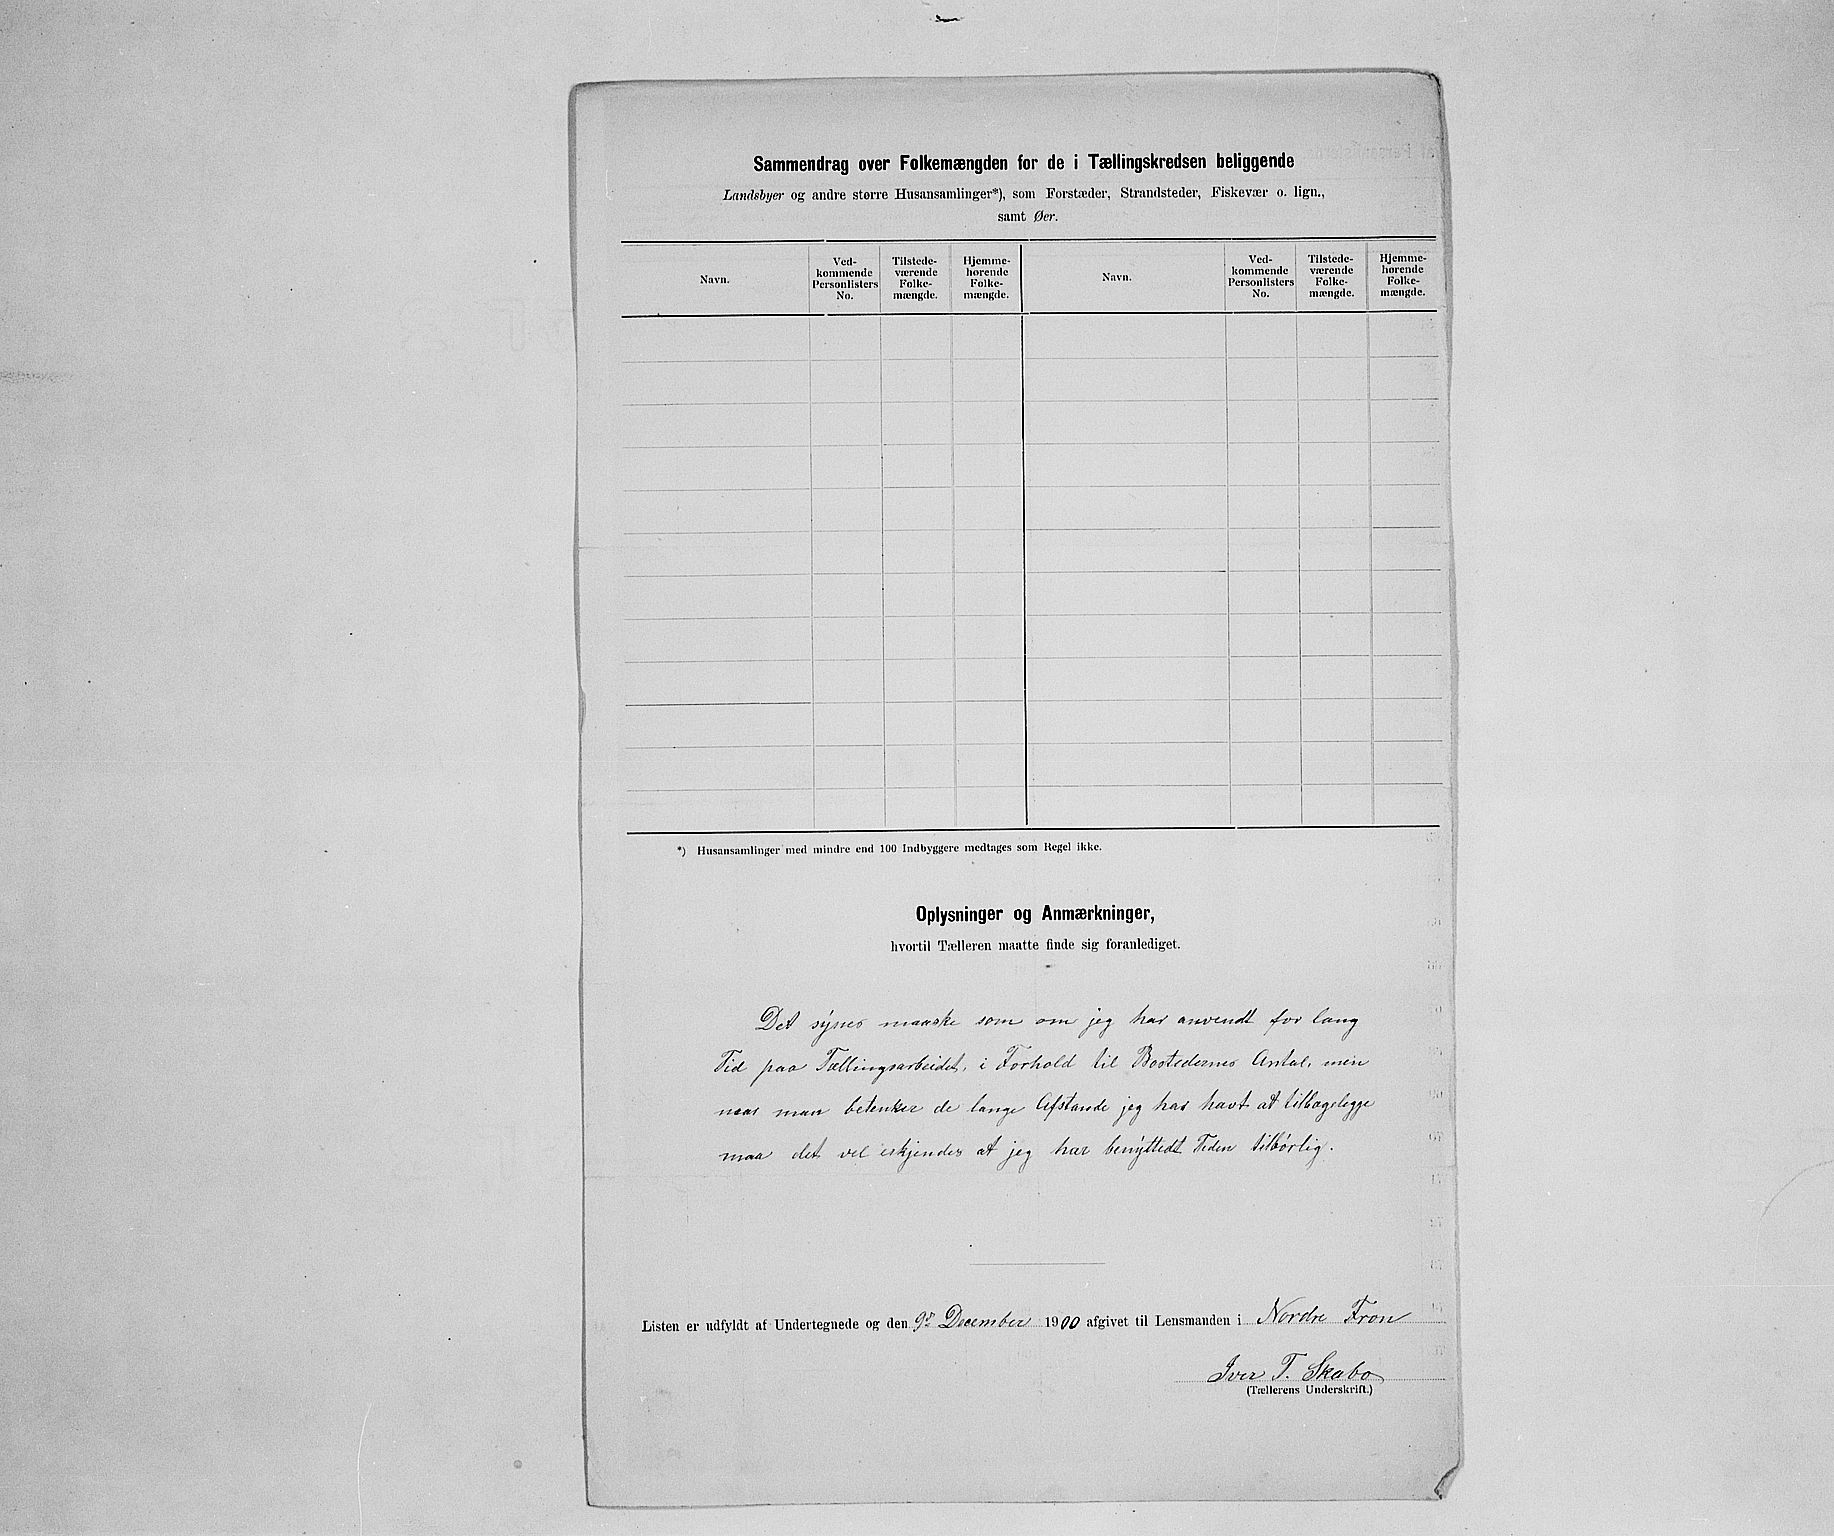 Sammendrag over Folkemængden for de i Tællingskredsen beliggende
Landsbyer og andre større Husansamlinger*), som Forstæder, Strandsteder, Fiskevær o. lign.,
samt Øer.
Navn.
Ved-
kommende
Personlisters
No.
Tilstede-
værende
Folke-
mængde.
Hjemme-
hørende
Folke-
mængde.
Navn.
Ved-
kommende
Personlisters
No.
Tilstede-
værende
Folke-
mængde.
Hjemme-
hørende
Folke-
mængde.
*) Husansamlinger med mindre end 100 Indbyggere medtages som Regel ikke.
Oplysninger og Anmærkninger,
hvortil Tælleren maatte finde sig foranlediget.
Det synes maaske som om jeg har anvendt for lang
Tid paa Tællingsarbeidet, i Forhold til Bostedernes Antal, men
naar man betenker de lange Afstande jeg har havt at tilbagelegge
maa det vel erkjendes at jeg har benyttedt Tiden tilbørlig.
Listen er udfyldt af Undertegnede og den 9de December 1900 afgivet til Lensmanden i Nordre Fron
Iver T. Skabo
(Tællerens Underskrift.)